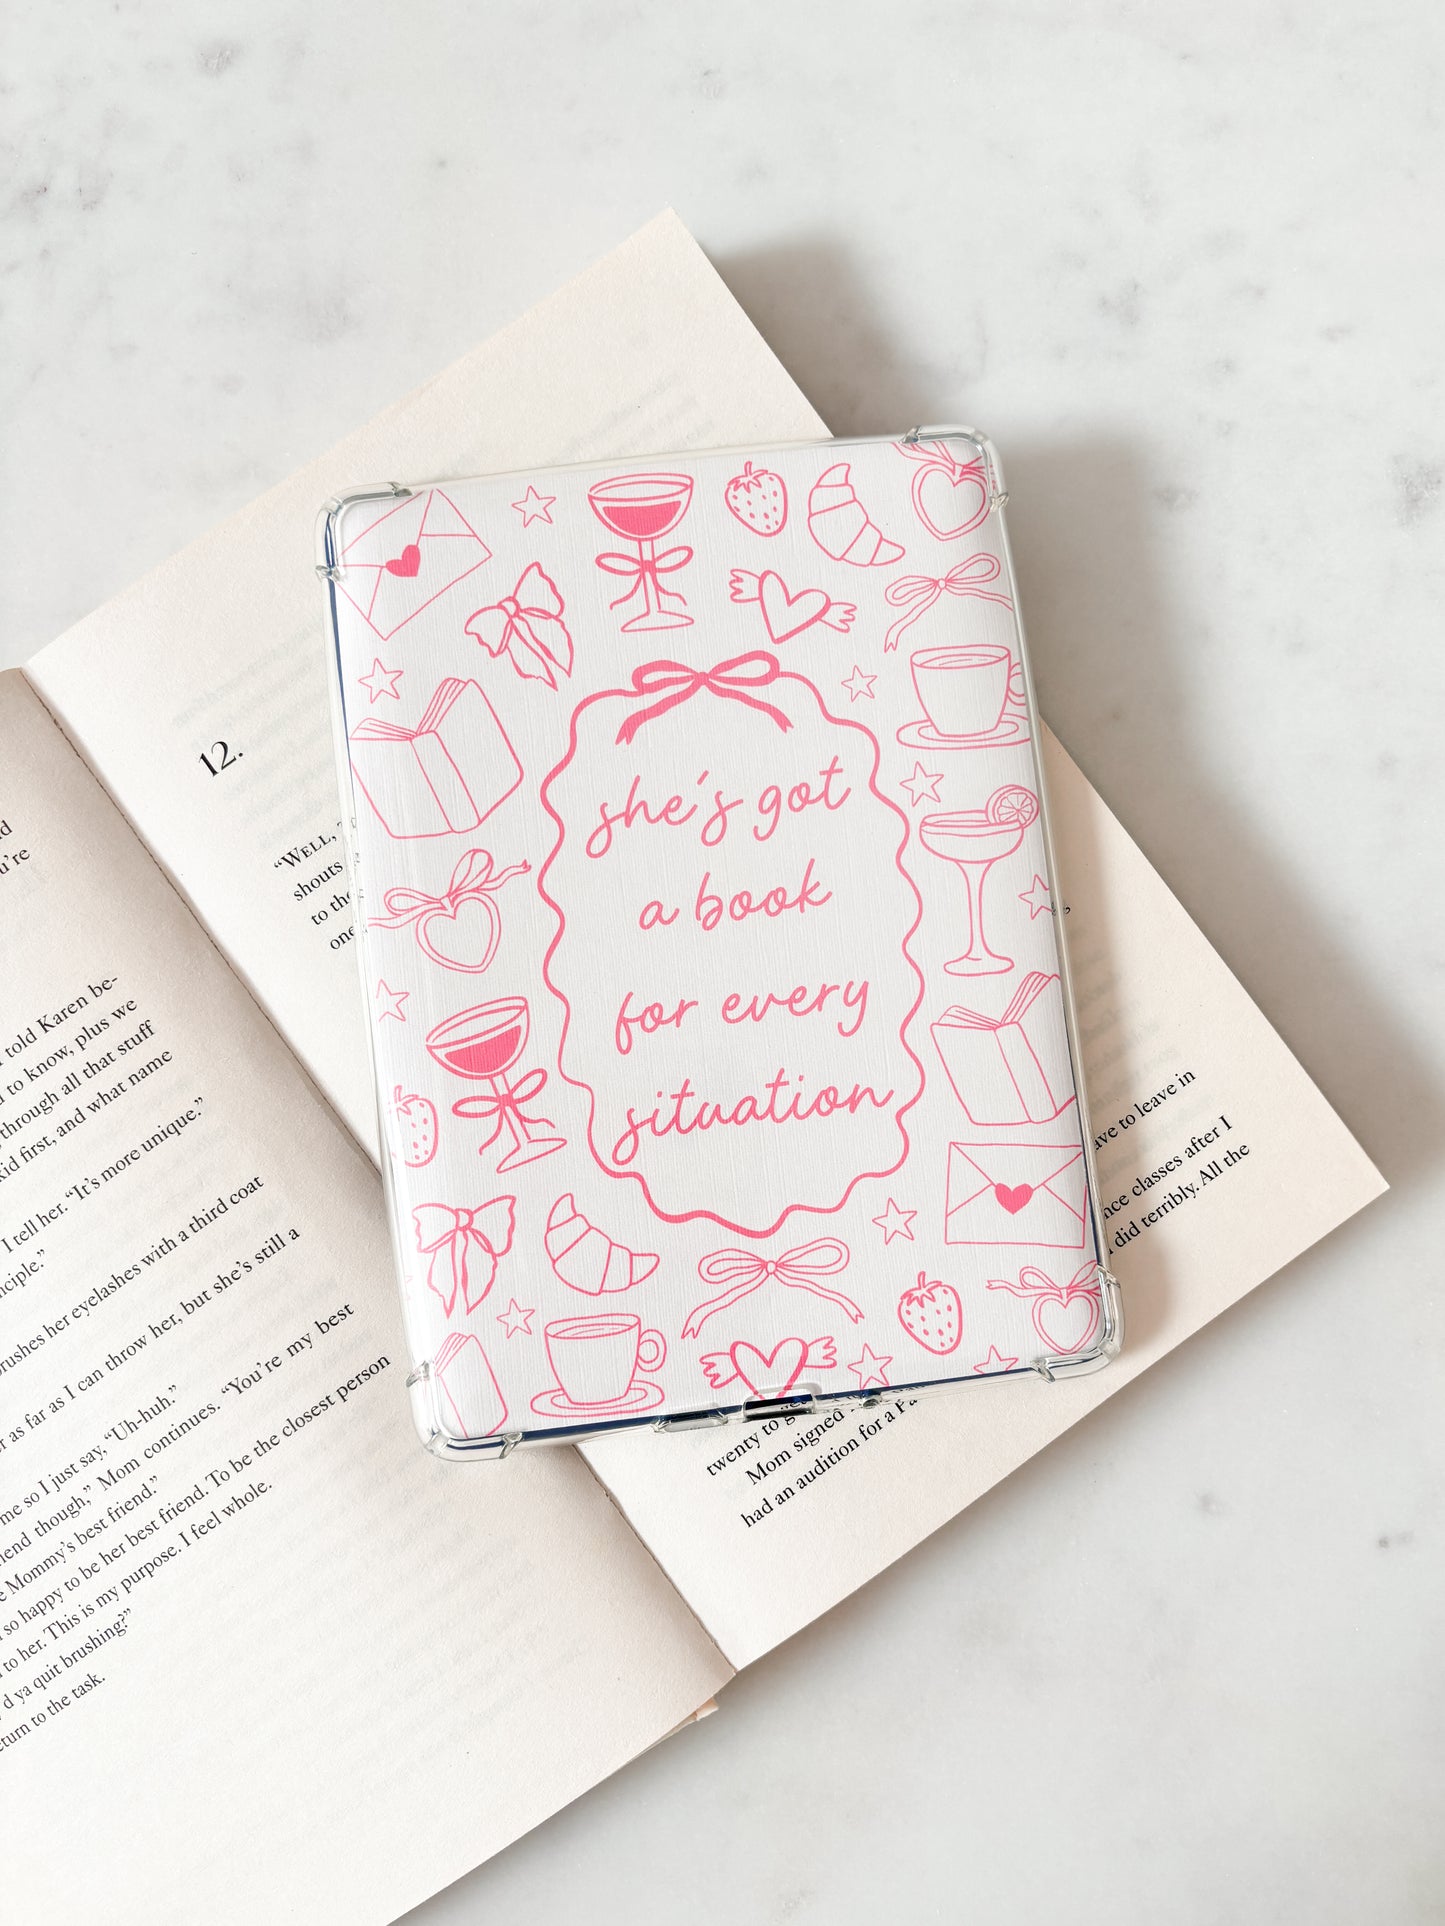 she's got
a book
for every
situation
12.
"WELL,
shouts
to the
one
told Karen be-
to know, plus we
through all that stuff
kid first, and what name
I tell her. "It's more unique."
her eyelashes with a third coat
as far as I can throw her, but she's still a
me so I just say, "Uh-huh."
though," Mom continues. "You're my best
Mommy's best friend."
so happy to be her best friend. To be the closest person
to her. This is my purpose. I feel whole.
ya quit brushing?"
to the task.
to leave in
classes after I
did terribly. All the
twenty to
Mom signed
had an audition for a